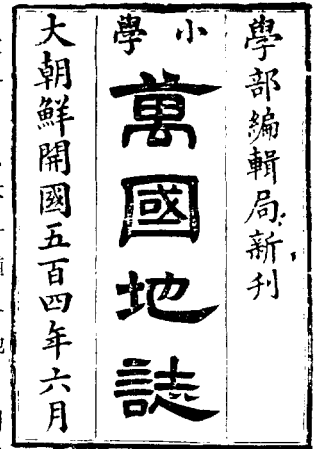 學部編輯局新刊
小學
萬國地誌
大朝鮮開國五百四年六月